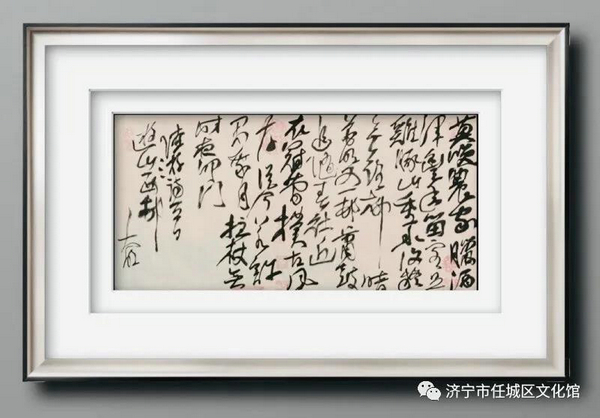 莫笑農家臘酒
渾豐年留客足
雞豚山重水復疑
無路柳暗
花明又一村簫鼓
追隨春社近
衣冠簡樸古風
存從今若許
閑乘月拄杖無
時夜叩門
陸游詩
遊山西村
济宁市任城区文化馆